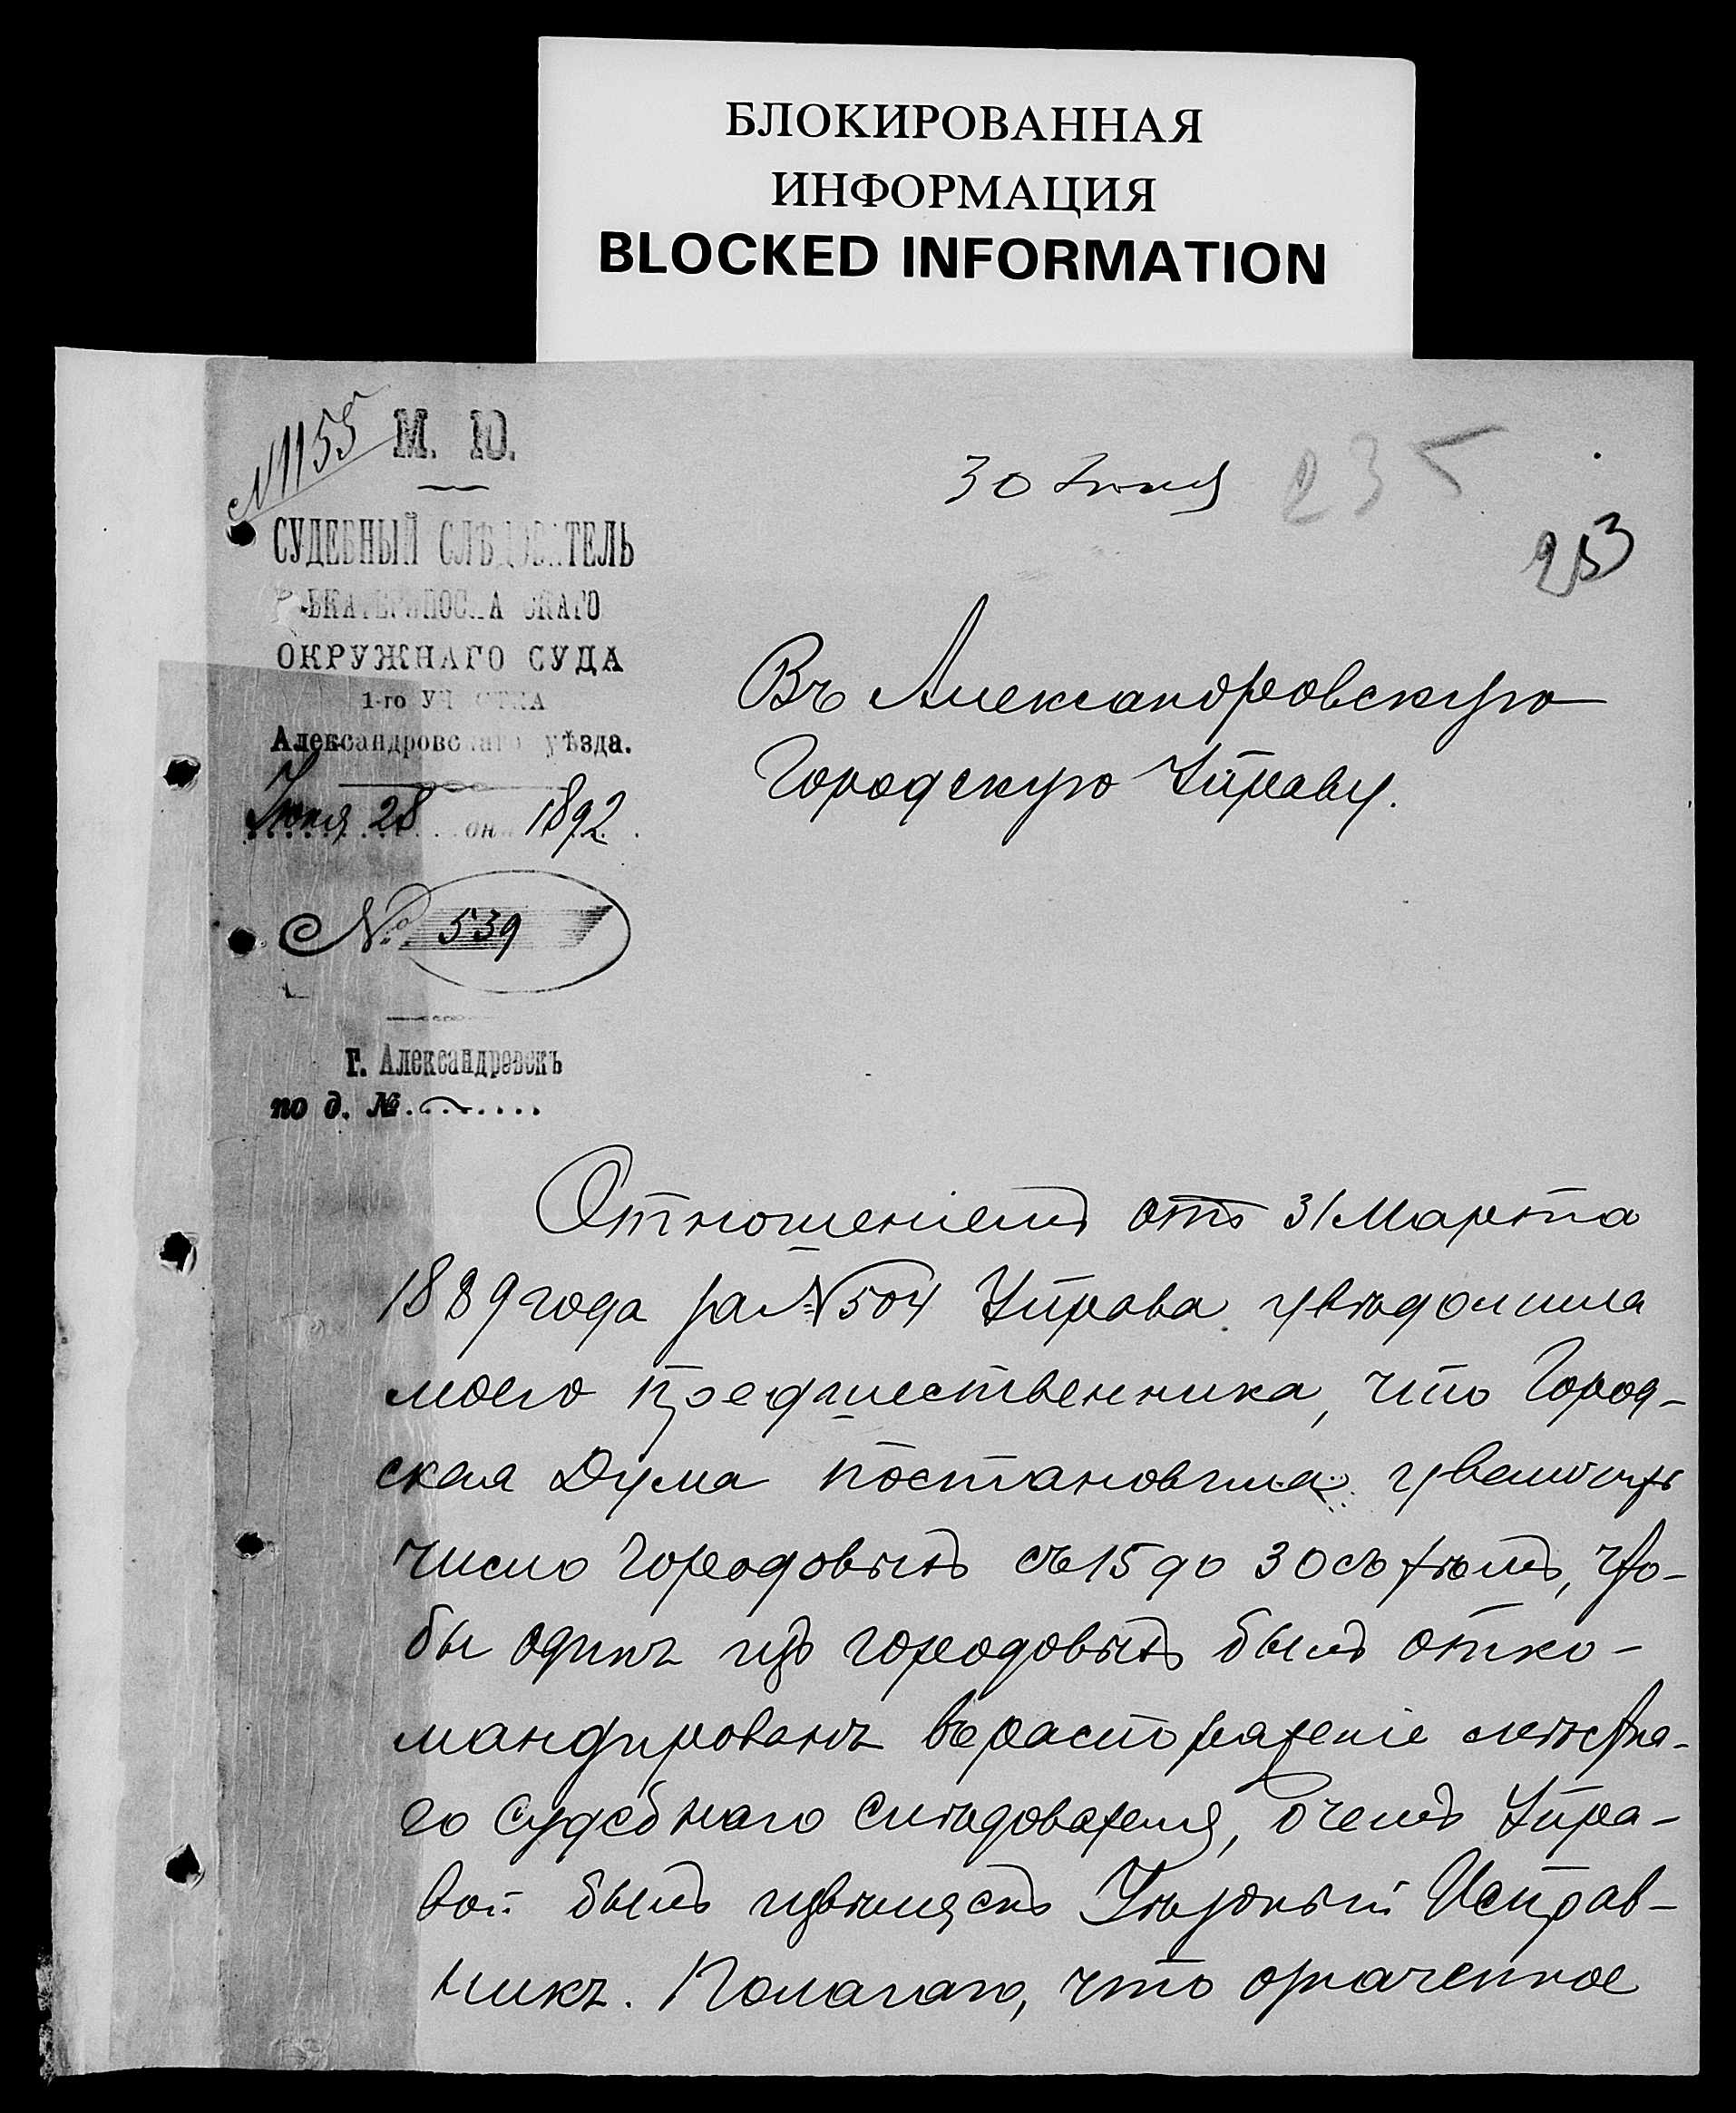 БЛОКИРОВАННАЯ
ИНФОРМАЦИЯ
BLOCKED INFORMATION
N 1155
М. Ю.
СУДЕБНЫЙ СЛѢДОВАТЕЛЬ
ЕКАТЕРИНОСЛАВСКАГО
ОКРУЖНАГО СУДА
1-го УЧАСТКА
Александровскаго уѣзда.
Іюня 28 дня 1892
№ 539
г. Александровскъ
по д. №
30 Іюня
235
253
Въ Александровскую
Городскую Управу.
Отношеніемъ отъ 31 Марта
1889 года за № 504 Управа увѣдомила
моего предшественника, что Город-
ская Дума постановила увеличить
число городовыхъ съ 15 до 30 съ тѣмъ, что-
бы одинъ изъ городовыхъ былъ отко-
мандированъ въ распоряженіе мѣстна-
го Судебнаго Слѣдователя, о чемъ Упра-
вой былъ извѣщенъ Уѣздный Исправ-
никъ. Полагаю, что означенное